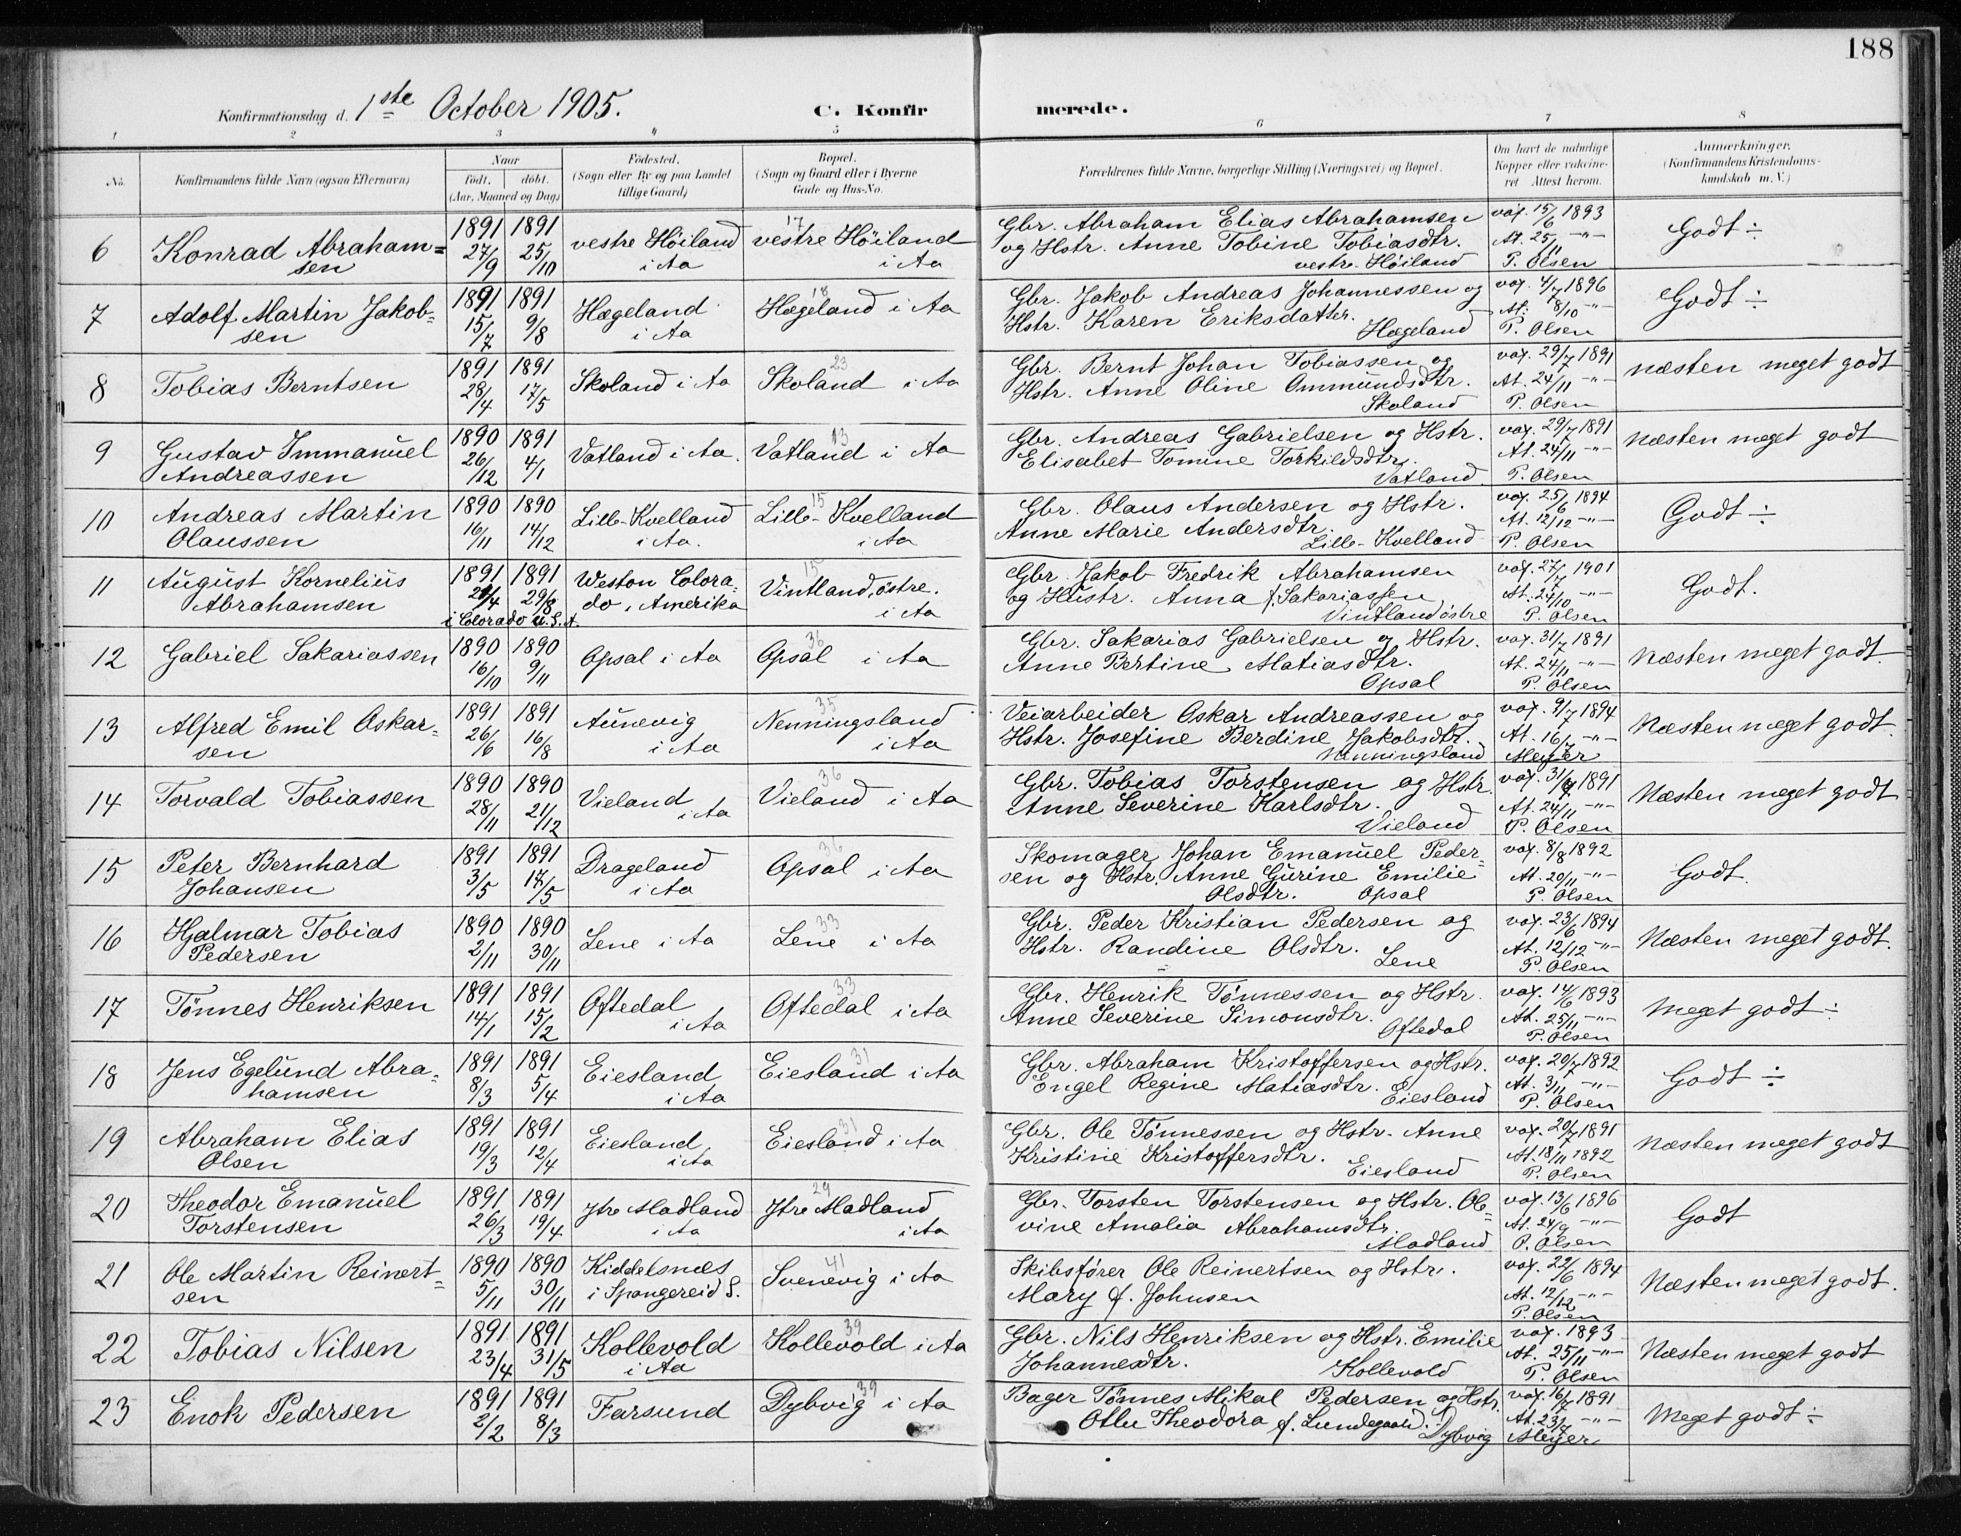 188
Konfirmationsdag d. 1ste October 1905. C. Konfirmerede.
1 2 3 4 5 6 7 8
No. Konfirmandens fulde Navn (ogsaa Efternavn) Naar født. døbt. (Aar, Maaned og Dag) Fødested. (Sogn eller By og paa Landet tillige Gaard) Bopæl. (Sogn og Gaard eller i Byerne Gade og Hus-No. Forældrenes fulde Navne, borgerlige Stilling (Næringsvei) og Bopæl. Om havt de naturlige Kopper eller vaccineret. Attest herom. Anmærkninger. (Konfirmandens Kristendomskundskab m. V.)
6 Konrad Abraham= 1891 1891 vestre Høiland 17 vestre Høiland Gbr. Abraham Elias Abrahamsen vax. 15/6 1893 Godt ÷
sen 27/9 25/10 i Aa i Aa og Hstr. Anne Tobine Tobiasdtr. At. 25/11 -"-
vestre Høiland P. Olsen
7 Adolf Martin Jakob- 1891 1891 Hægeland 18 Hægeland i Aa Gbr. Jakob Andreas Johannessen og vax. 4/7 1896 Godt ÷
sen 15/7 9/8 i Aa Hstr. Karen Eriksdatter. At. 8/10 -"-
Hægeland P. Olsen
8 Tobias Berntsen 1891 1891 Skoland i Aa 23 Skoland i Aa Gbr. Bernt Johan Tobiassen og vax. 29/7 1891 næsten meget godt
28/4 17/5 Hstr. Anne Oline Ommundsdtr. At. 24/11 -"-
Skoland P. Olsen
9 Gustav Immanuel 1890 1891 Vatland i Aa. 13 Vatland i Aa Gbr. Andreas Gabrielsen og Hstr. vax. 29/7 1891 Næsten meget godt
Andreassen 26/12 4/1 Elisabet Tomine Torkildsdtr. At. 24/11 -"-
Vatland P. Olsen
10 Andreas Martin 1890 1890 Lille-Kvelland 15 Lille-Kvelland Gbr. Olaus Andersen og Hstr. vax. 25/6 1894 Godt ÷
Olaussen 16/11 14/12 i Aa. i Aa Anne Marie Andersdtr. At. 12/12 -"-
Lille-Kvelland P. Olsen
11 August Kornelius 1891 1891 Weston Colora- 15 Vintland, østre. Gbr. Jakob Fredrik Abrahamsen vax. 27/7 1901 Godt.
Abrahamsen 29/8 do, Amerika i Aa og Hustr. Anna f. Sakariassen At. 24/10 -"-
i Colorado U.S.A. Vintland østre P. Olsen
12 Gabriel Sakariassen 1890 1890 Opsal i Aa 36 Opsal i Aa Gbr. Sakarias Gabrielsen og Hstr. vax. 31/7 1891 Næsten meget godt.
16/10 9/11 Anne Bertine Matiasdtr. At. 24/11 -"-
Opsal P. Olsen
13 Alfred Emil Oskar- 1891 1891 Aunevig 35 Nenningsland Veiarbeider Oskar Andreassen og vax. 9/7 1894 Næsten meget godt.
sen 26/6 16/8 i Aa i Aa Hstr. Josefine Berdine Jakobsdtr. At. 16/7 -"-
Nenningsland Meyer
14 Torvald Tobiassen 1890 1890 Vieland 36 Vieland i Aa Gbr. Tobias Torstensen og Hstr. vax. 31/7 1891 Næsten meget godt
28/11 21/12 i Aa Anne Severine Karlsdtr. At. 24/11 -"-
Vieland P. Olsen
15 Peter Bernhard 1891 1891 Drageland 36 Opsal i Aa Skomager Johan Emanuel Peder- vax. 8/8 1892 Godt.
Johansen 3/5 /5 i Aa sen og Hstr. Anne Gurine Emilie At. 20/11 -"-
Olsdtr. Opsal P. Olsen
16 Hjalmar Tobias 1890 1890 Lene i Aa 33 Lene i Aa Gbr. Peder Kristian Pedersen og vax. 23/6 1894 Næsten meget godt.
Pedersen 2/11 30/11 Hstr. Randine Olsdtr. At. 12/12 -"-
Lene P. Olsen
17 Tønnes Henriksen 1891 1891 Oftedal 33 Oftedal i Aa Gbr. Henrik Tønnessen og Hstr. vax. 14/6 1893 Meget godt ÷
14/1 15/2 i Aa Anne Severine Simonsdtr. At. 25/11 -"-
Oftedal P. Olsen
18 Jens Egelund Abra- 1891 1891 Eiesland 31 Eiesland i Aa Gbr. Abraham Kristoffersen og Hstr. vax. 20/7 1892 Godt ÷
hamsen 8/3 5/4 i Aa Engel Regine Matiasdtr. At. 3/11 -"-
Eiesland P. Olsen
19 Abraham Elias 1891 1891 Eiesland 31 Eiesland i Aa Gbr. Ole Tønnessen og Hstr. Anne vax. 20/7 1891 Næsten meget godt
Olsen 19/3 12/4 i Aa Kristine Kristoffersdtr. At. 18/11 1892
Eiesland P. Olsen
20 Theodor Emanuel 1891 1891 Ytre Madland 29 Ytre Madland Gbr. Torsten Torstensen og Hstr. Ol- vax. 13/6 1896 Godt
Torstensen 26/3 19/4 i Aa i Aa vine Amalia Abrahamsdtr. At. 24/9 -"-
Madland P. Olsen
21 Ole Martin Reinert- 1890 1890 Kiddelsnæs 41 Svenevig i Aa Skibsfører Ole Reinertsen og Hstr. vax. 22/6 1894 Næsten meget godt.
sen 5/11 30/11 i Spangereid S. Mary f. Johnsen At. 12/12 -"-
P. Olsen
22 Tobias Nilsen 1891 1891 Kollevold 39 Kollevold i Aa Gbr. Nils Henriksen og Hstr. Emilie vax. 1893 Næsten meget godt
23/4 31/5 i Aa Johannesdtr. Kollevold At. 25/11 -"-
P. Olsen
23 Enok Pedersen 1891 1891 Farsund 39 Dybvig i Aa Bager Tønnes Mikal Pedersen og Hstr. vax. 16/7 1891 Meget godt ÷
2/2 8/3 Theodora f. Lundegaard. At. 23/7 -"-
Dybvig Meyer